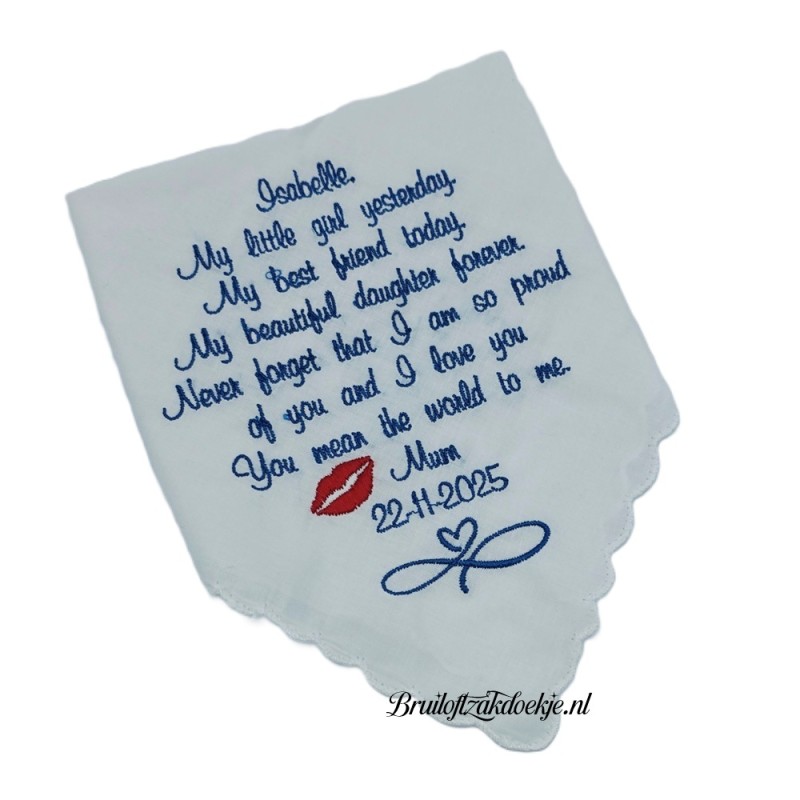 Isabelle.
My little girl yesterday.
My Best friend today.
My beautiful daughter forever.
Never forget that I am so proud
of you and I love you
You mean the world to me.
Mum
22-11-2025
Bruiloftzakdoekje.nl